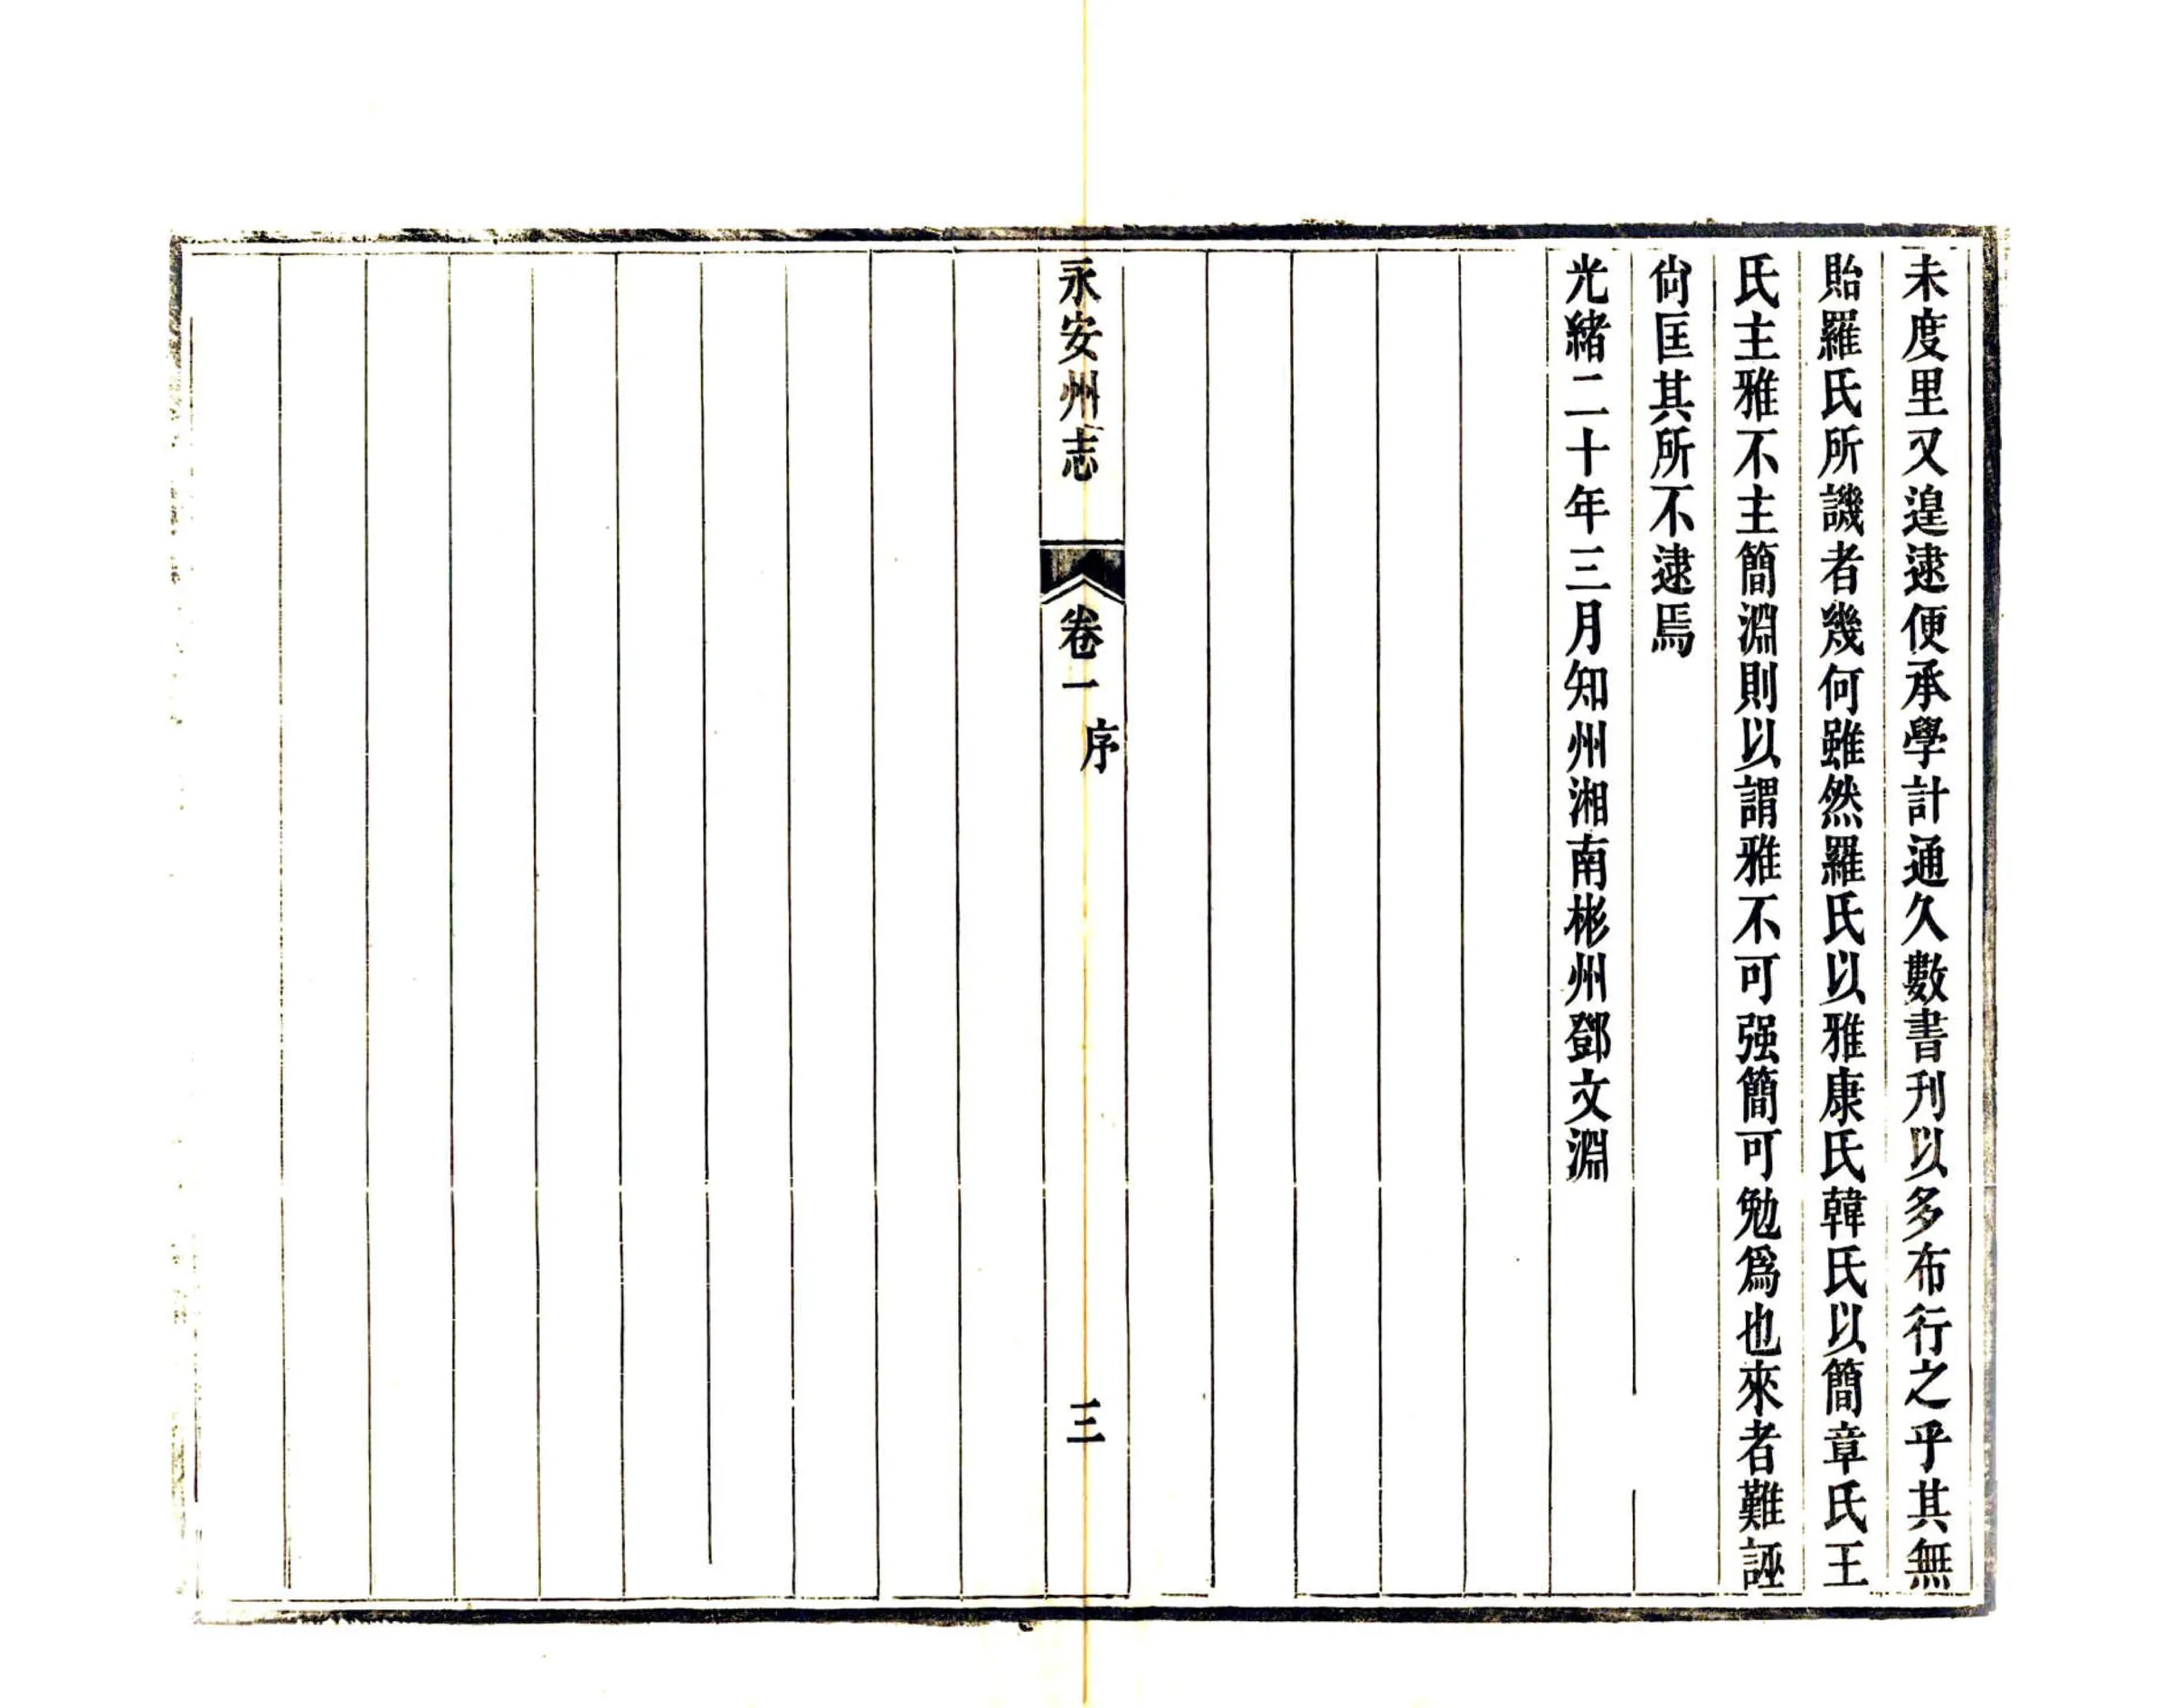 未度里又遑逮便承學計通久數書刊以多布行之乎其無
貽羅氏所譏者幾何雖然羅氏以雅康氏韓氏以簡章氏王
氏主雅不主簡淵則以謂雅不可强簡可勉爲也來者難誣
尙匡其所不逮焉
光緒二十年三月知州湘南彬州鄧文淵
永安州志
卷一
序
三